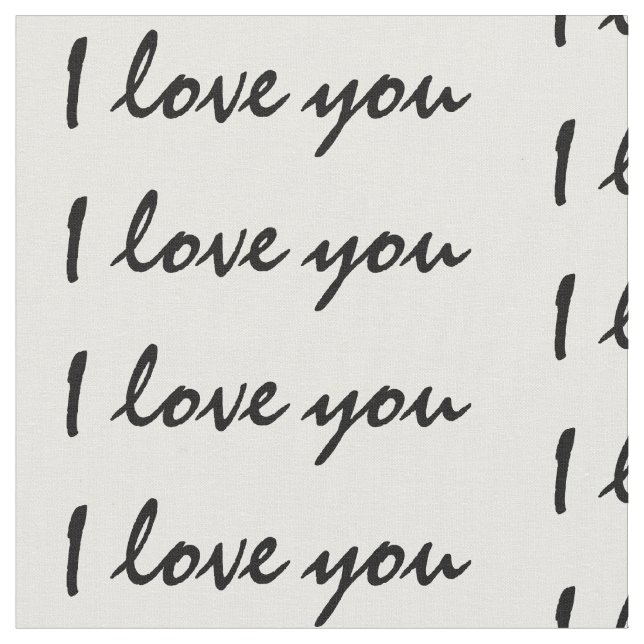 I love you
I love you
I love you
I love you
I l
I l
I l
I l
I l